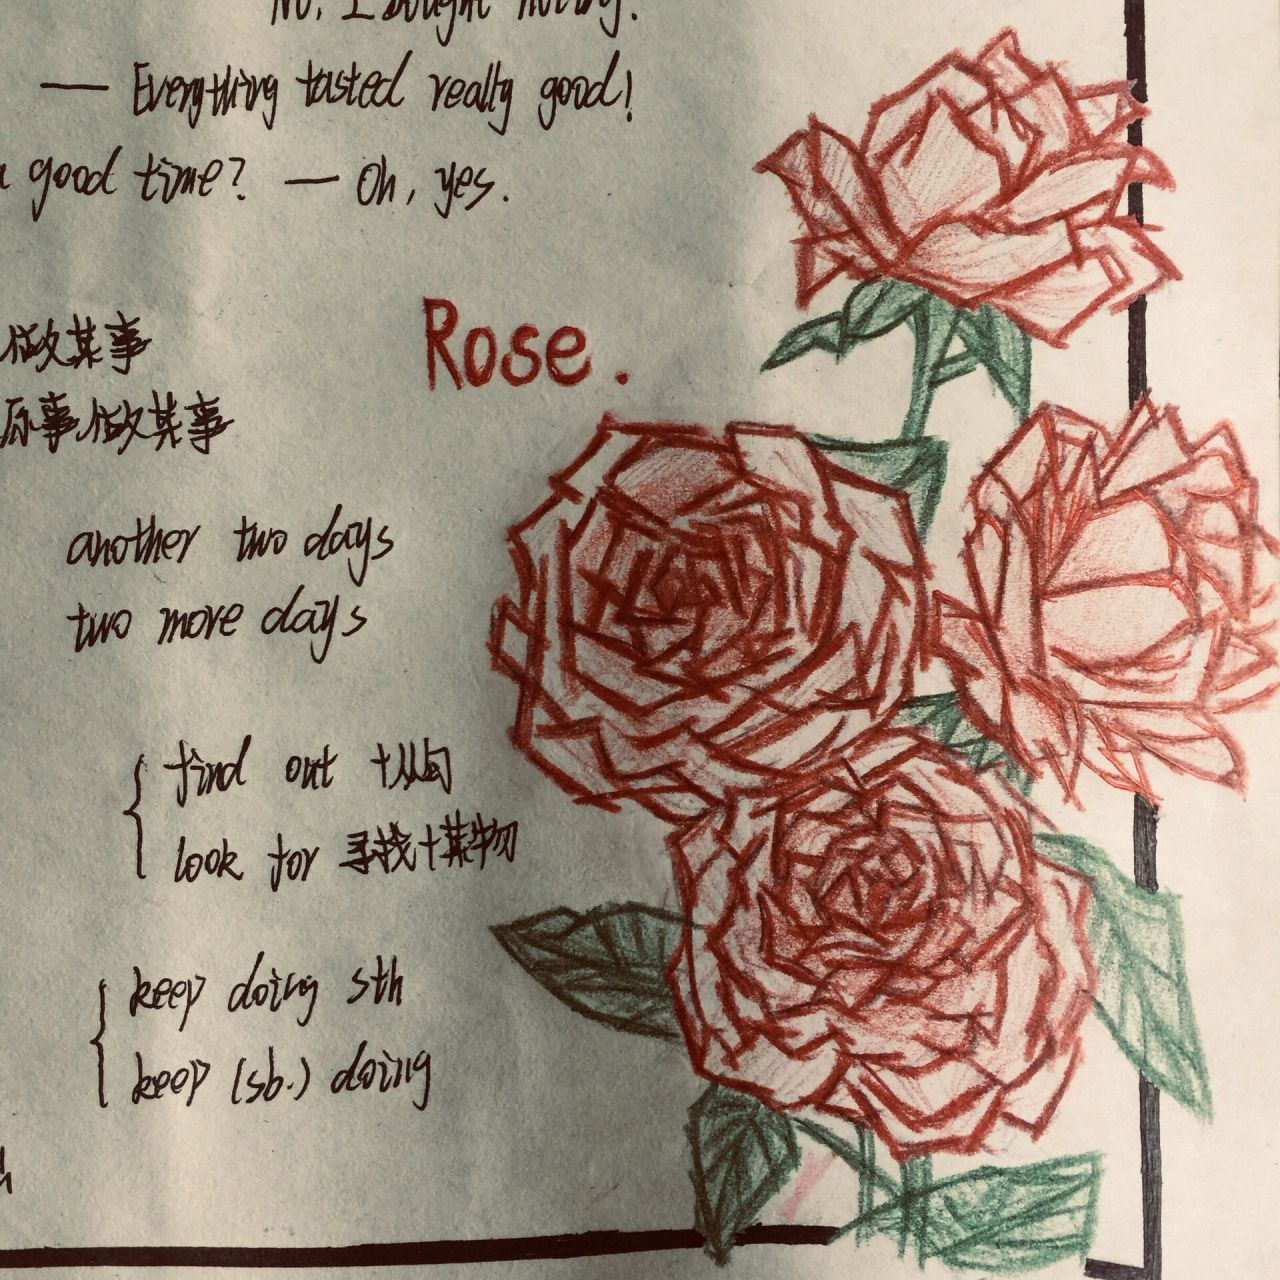 No, I bought nothing.
— Everything tasted really good!
a good time? — Oh, yes.
做某事
Rose.
事做某事
another two days
two more days
find out +从句
look for 寻找+某物
keep doing sth
keep (sb.) doing